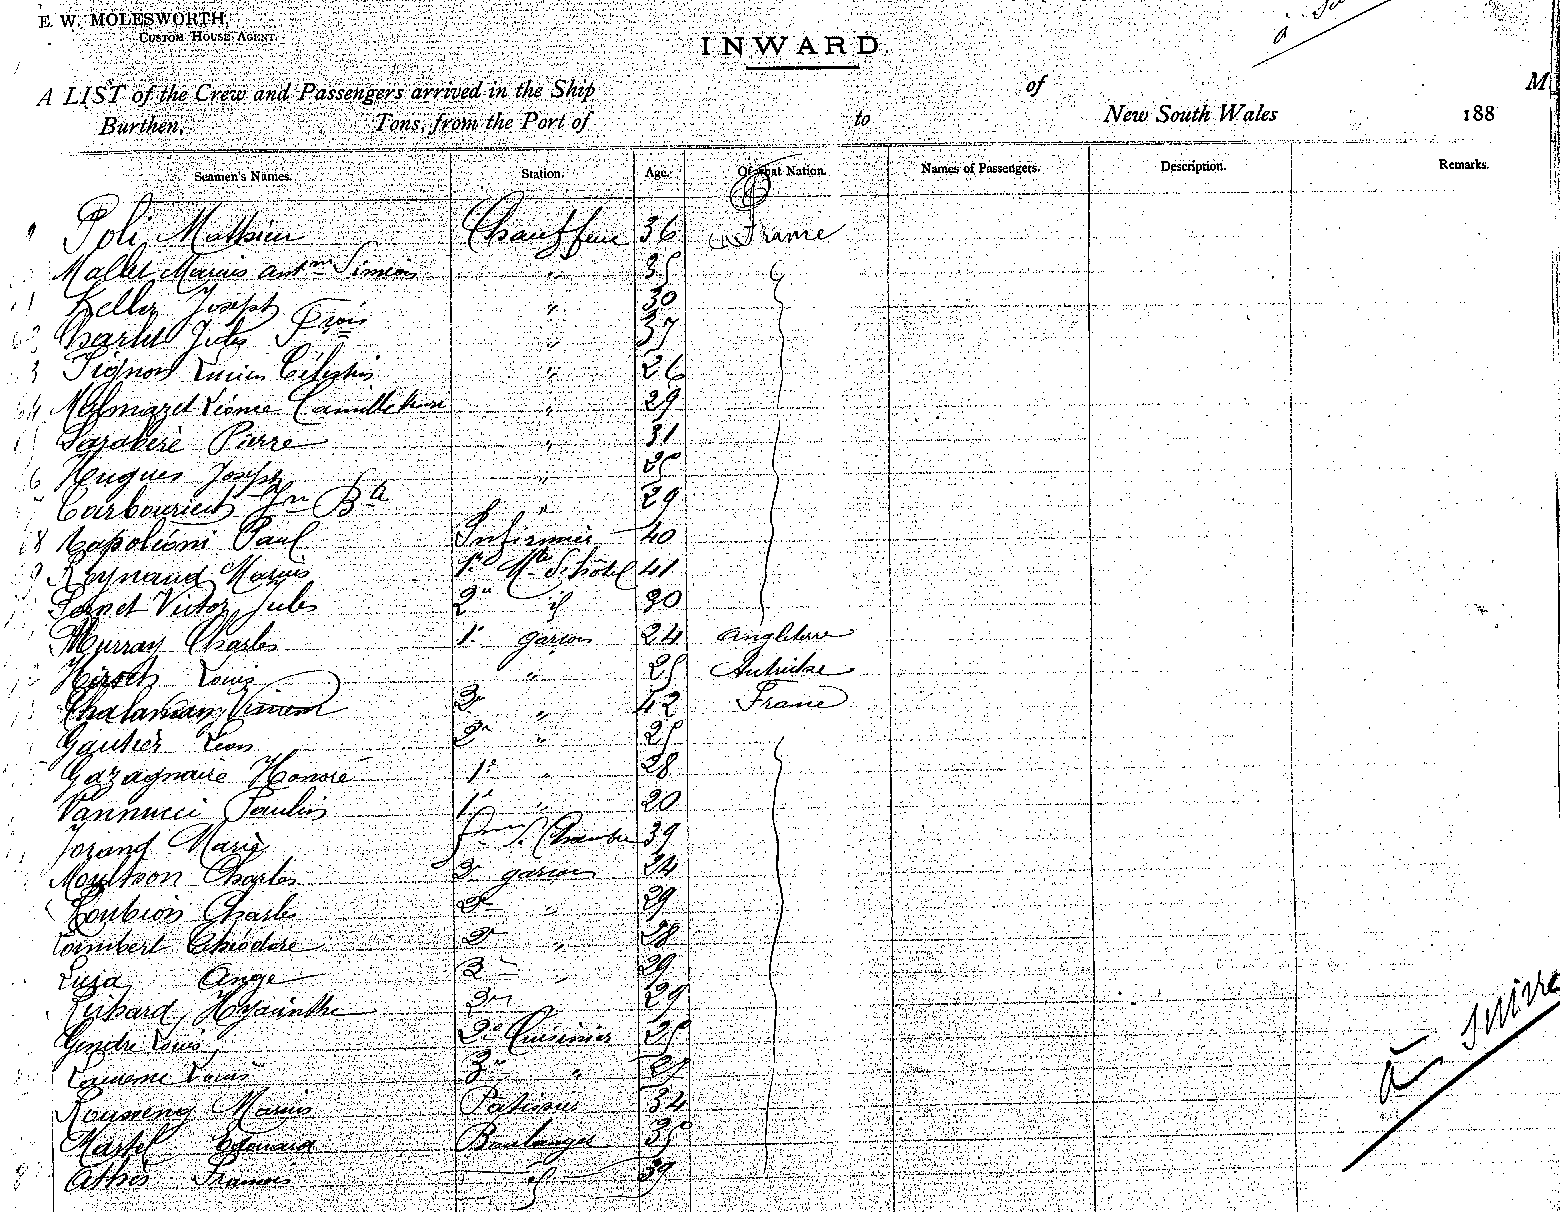 E. W. MOLESWORTH,
CUSTOM HOUSE AGENT.
à
INWARD
A LIST of the Crew and Passengers arrived in the Ship of M
Burthen, Tons, from the Port of to New South Wales 188
Seamen's Names. Station. Age. Of what Nation. Names of Passengers. Description. Remarks.
Poli Mathieu Chauffeur 36 France
Mallet Marius antnin Siméon " 35
Keller Joseph " 30
Charlet Jules Frçois " 37
Tignon Lucien Célestin " 26
Malmazet Léonce Camille " 29
Sarabère Pierre " 31
Hugues Joseph " 25
Carbouriech Jn Bte " 29
8 Napoléoni Paul Infirmier 40
9 Reynaud Marius 1er Mtre d'hôtel 41
Victor Jules 2e id 30
Murray Charles 1e garçon 24 Angleterre
Hirsch Louis " 25 Autriche
Vincent 3e " 42 France
Gautier Léon 2e " 25
Gazagnaire Honoré 1e " 28
Vannucci Paulin 1e " 20
Jorand Marie fme d. Chambre 39
Moulson Charles 3e garçon 24
Roubion Charles 2e " 29
Lombert Théodore 2e " 28
Luga Ange 3e " 29
Richard Hyacinthe 3e 29
Gendre Louis 2e Cuisinier 25
Laurence Louis 3e " 27
Roumeng Marius Patissier 34
Martel Edouard Boulanger 35
François id 39
à suivre